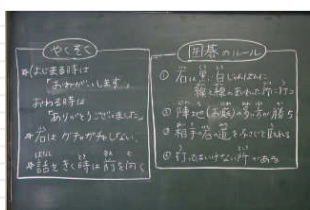 やくそく
*はじまる時は
「おねがいします」
おわる時は
「ありがとうございました」
*石はグチャグチャしない。
*話をきく時は前を向く
囲碁のルール
① 石は黒、白じゅんばんに
線と線の まじわった所に打つ
② 陣地(お庭)の多い方が勝ち
③ 相手石の道をふさぐと取れる
④ 打ってはいけない所がある